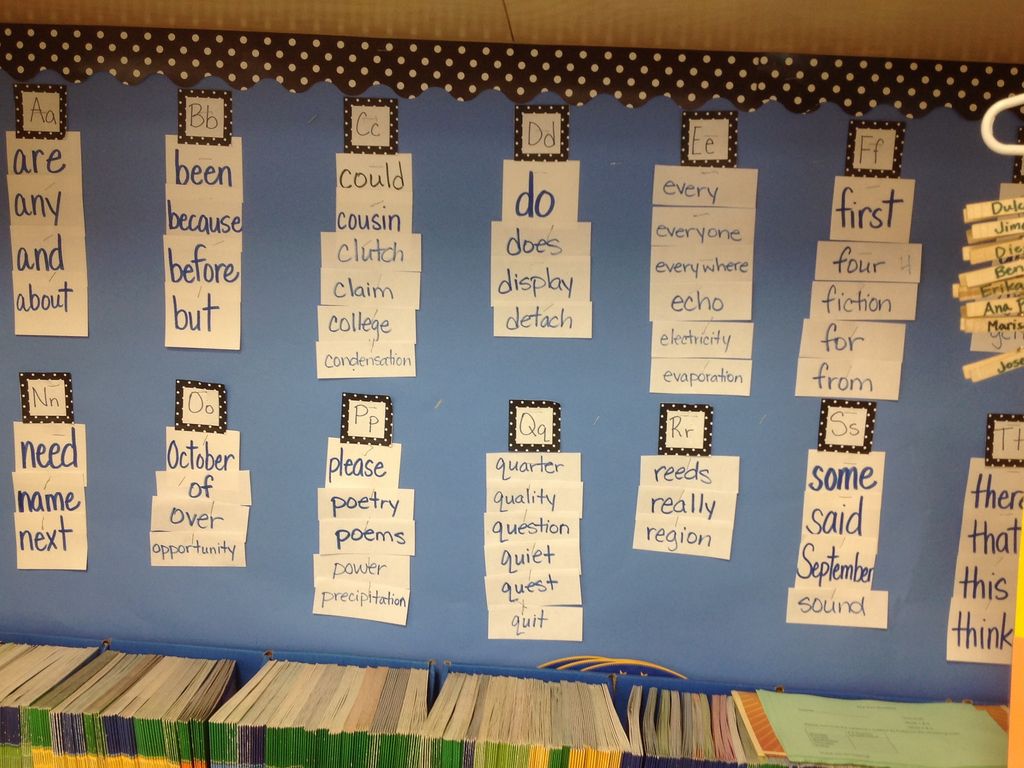 Aa
are
any
and
about
Bb
been
because
before
but
Cc
could
cousin
clutch
claim
college
condensation
Dd
do
does
display
detach
Ee
every
everyone
everywhere
echo
electricity
evaporation
Ff
first
four 4
fiction
for
from
Dulc
Jime
Die
Ben
Erika
Ana P
Maris
Jose
Nn
need
name
next
Oo
October
of
over
opportunity
Pp
please
poetry
poems
power
precipitation
Qq
quarter
quality
question
quiet
quest
quit
Rr
reeds
really
region
Ss
some
said
September
sound
Tt
there
that
this
think